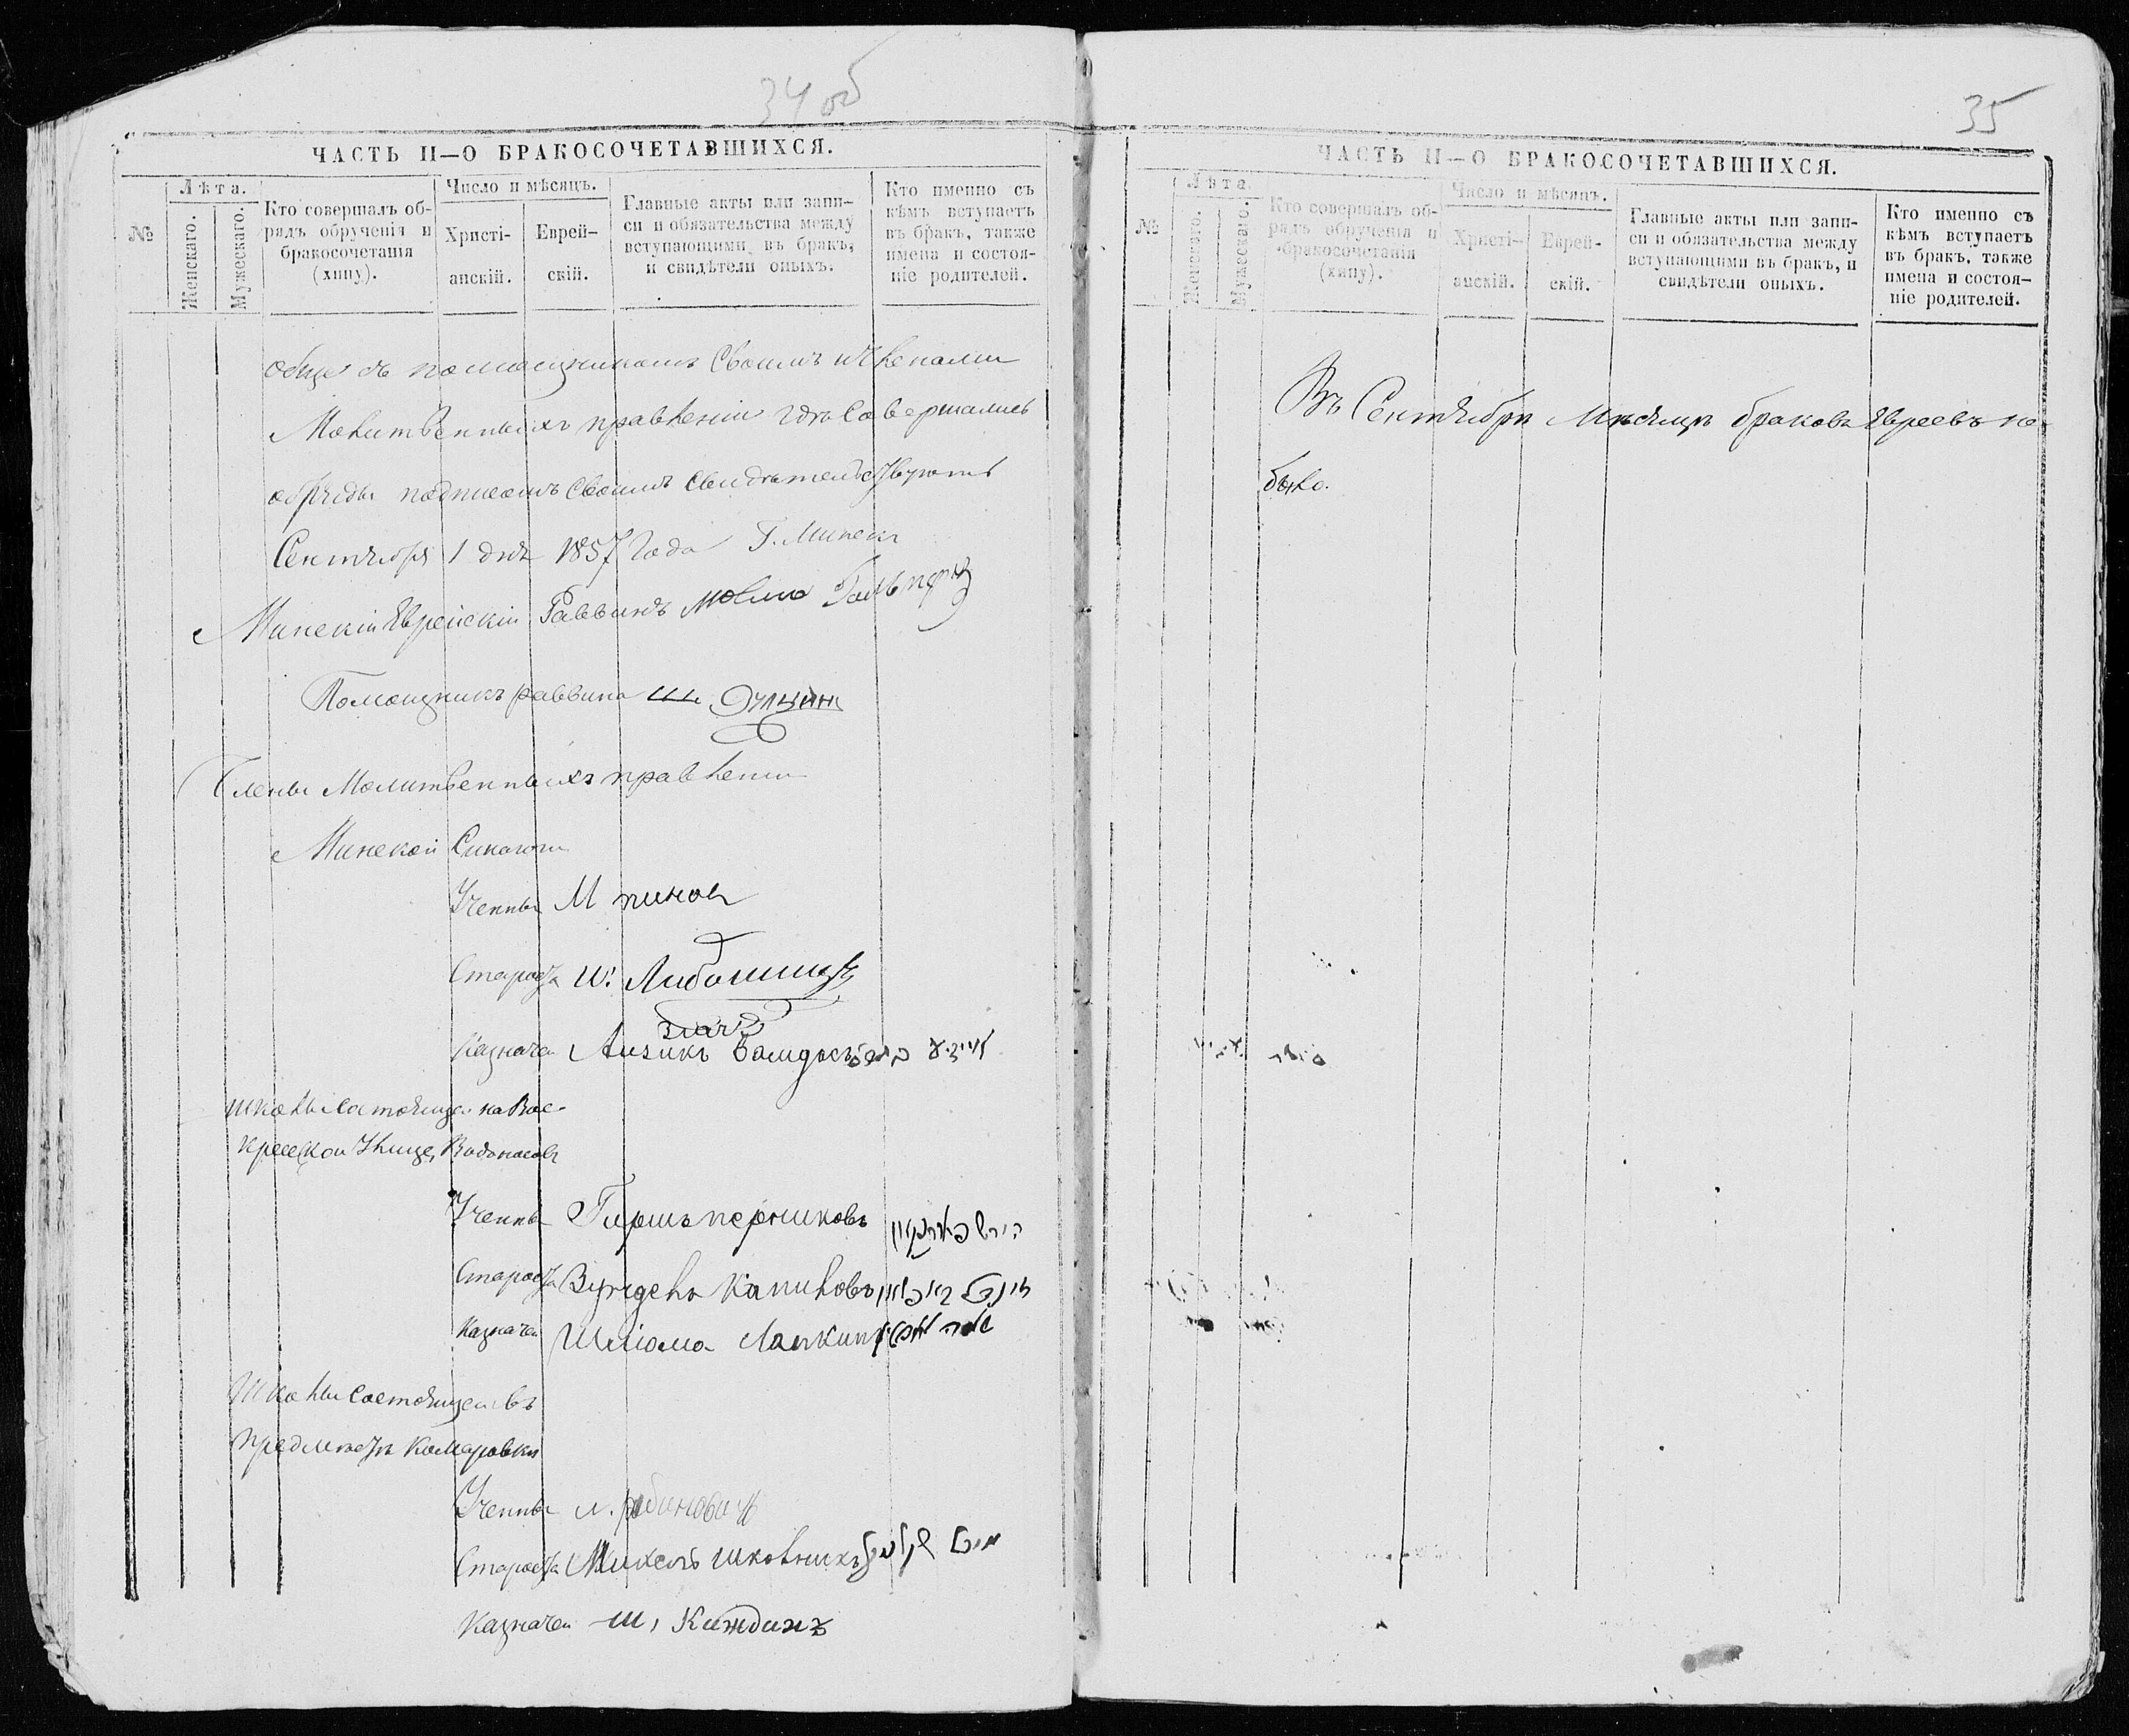 34 об
ЧАСТЬ II—О БРАКОСОЧЕТАВШИХСЯ.
№
Лѣта.
Женскаго.
Мужескаго.
Кто совершалъ об-
рядъ обрученія и
бракосочетанія
(хипу).
Число и мѣсяцъ.
Христі-
анскій.
Еврей-
скій.
Главные акты или запи-
си и обязательства между
вступающими въ бракъ,
и свидѣтели оныхъ.
Кто именно съ
кѣмъ вступаетъ
въ бракъ, также
имена и состоя-
ніе родителей.
обще съ помощникомъ своимъ и членами
Молитвенныхъ правленіи гдѣ совершались
обряды подписомъ своимъ свидѣтельствуютъ
Сентября 1 дня 1857 года Г. Минскъ
Минскій Еврейскій Раввинъ
Помощникъ раввина Ш.
Члены Молитвенныхъ правленіи
Минской Синагоги
Ученый М
Староста Ш.
Казначей Айзикъ
Школы состоящей на Вос-
кресской улице, Водоносовъ
Ученый Гиршъ
Староста Капиловъ
Казначей Шліома Лапкинъ
Школы состоящей въ
предместьѣ Комаровки
Ученый Рабиновичъ
Староста Михель Школникъ
Казначей Ш,
35
ЧАСТЬ II—О БРАКОСОЧЕТАВШИХСЯ.
№
Лѣта.
Женскаго.
Мужескаго.
Кто совершалъ об-
рядъ обрученія и
бракосочетанія
(хипу).
Число и мѣсяцъ.
Христі-
анскій.
Еврей-
скій.
Главные акты или запи-
си и обязательства между
вступающими въ бракъ, и
свидѣтели оныхъ.
Кто именно съ
кѣмъ вступаетъ
въ бракъ, также
имена и состоя-
ніе родителей.
Въ Сентябрѣ Мѣсяцѣ браковъ Евреевъ не
было.